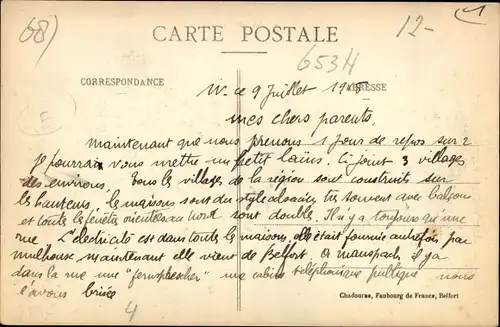 68)
CARTE POSTALE
12-
6534
CORRESPONDANCE
ADRESSE
E
ce 9 Juillet 19
mes chers parents,
maintenant que nous prenons 1 jour de repos sur 2
Je pourrai vous mettre un petit Ci joint 3 villages
des environs. Tous les villages de la région sont construits sur
les hauteurs, les maisons sont du style alsacien très souvent avec balcons
et toutes les fenêtres orientées au nord sont double. Il n'y a toujours qu'une
rue L'électricité est dans toutes les maisons, elle était fournie autrefois par
mulhouse maintenant elle vient de Belfort. a manspach, il y a
dans la rue une "fernsprecher" une cabine téléphonique publique nous
l'avons brisée
4
Chadourne, Faubourg de France, Belfort